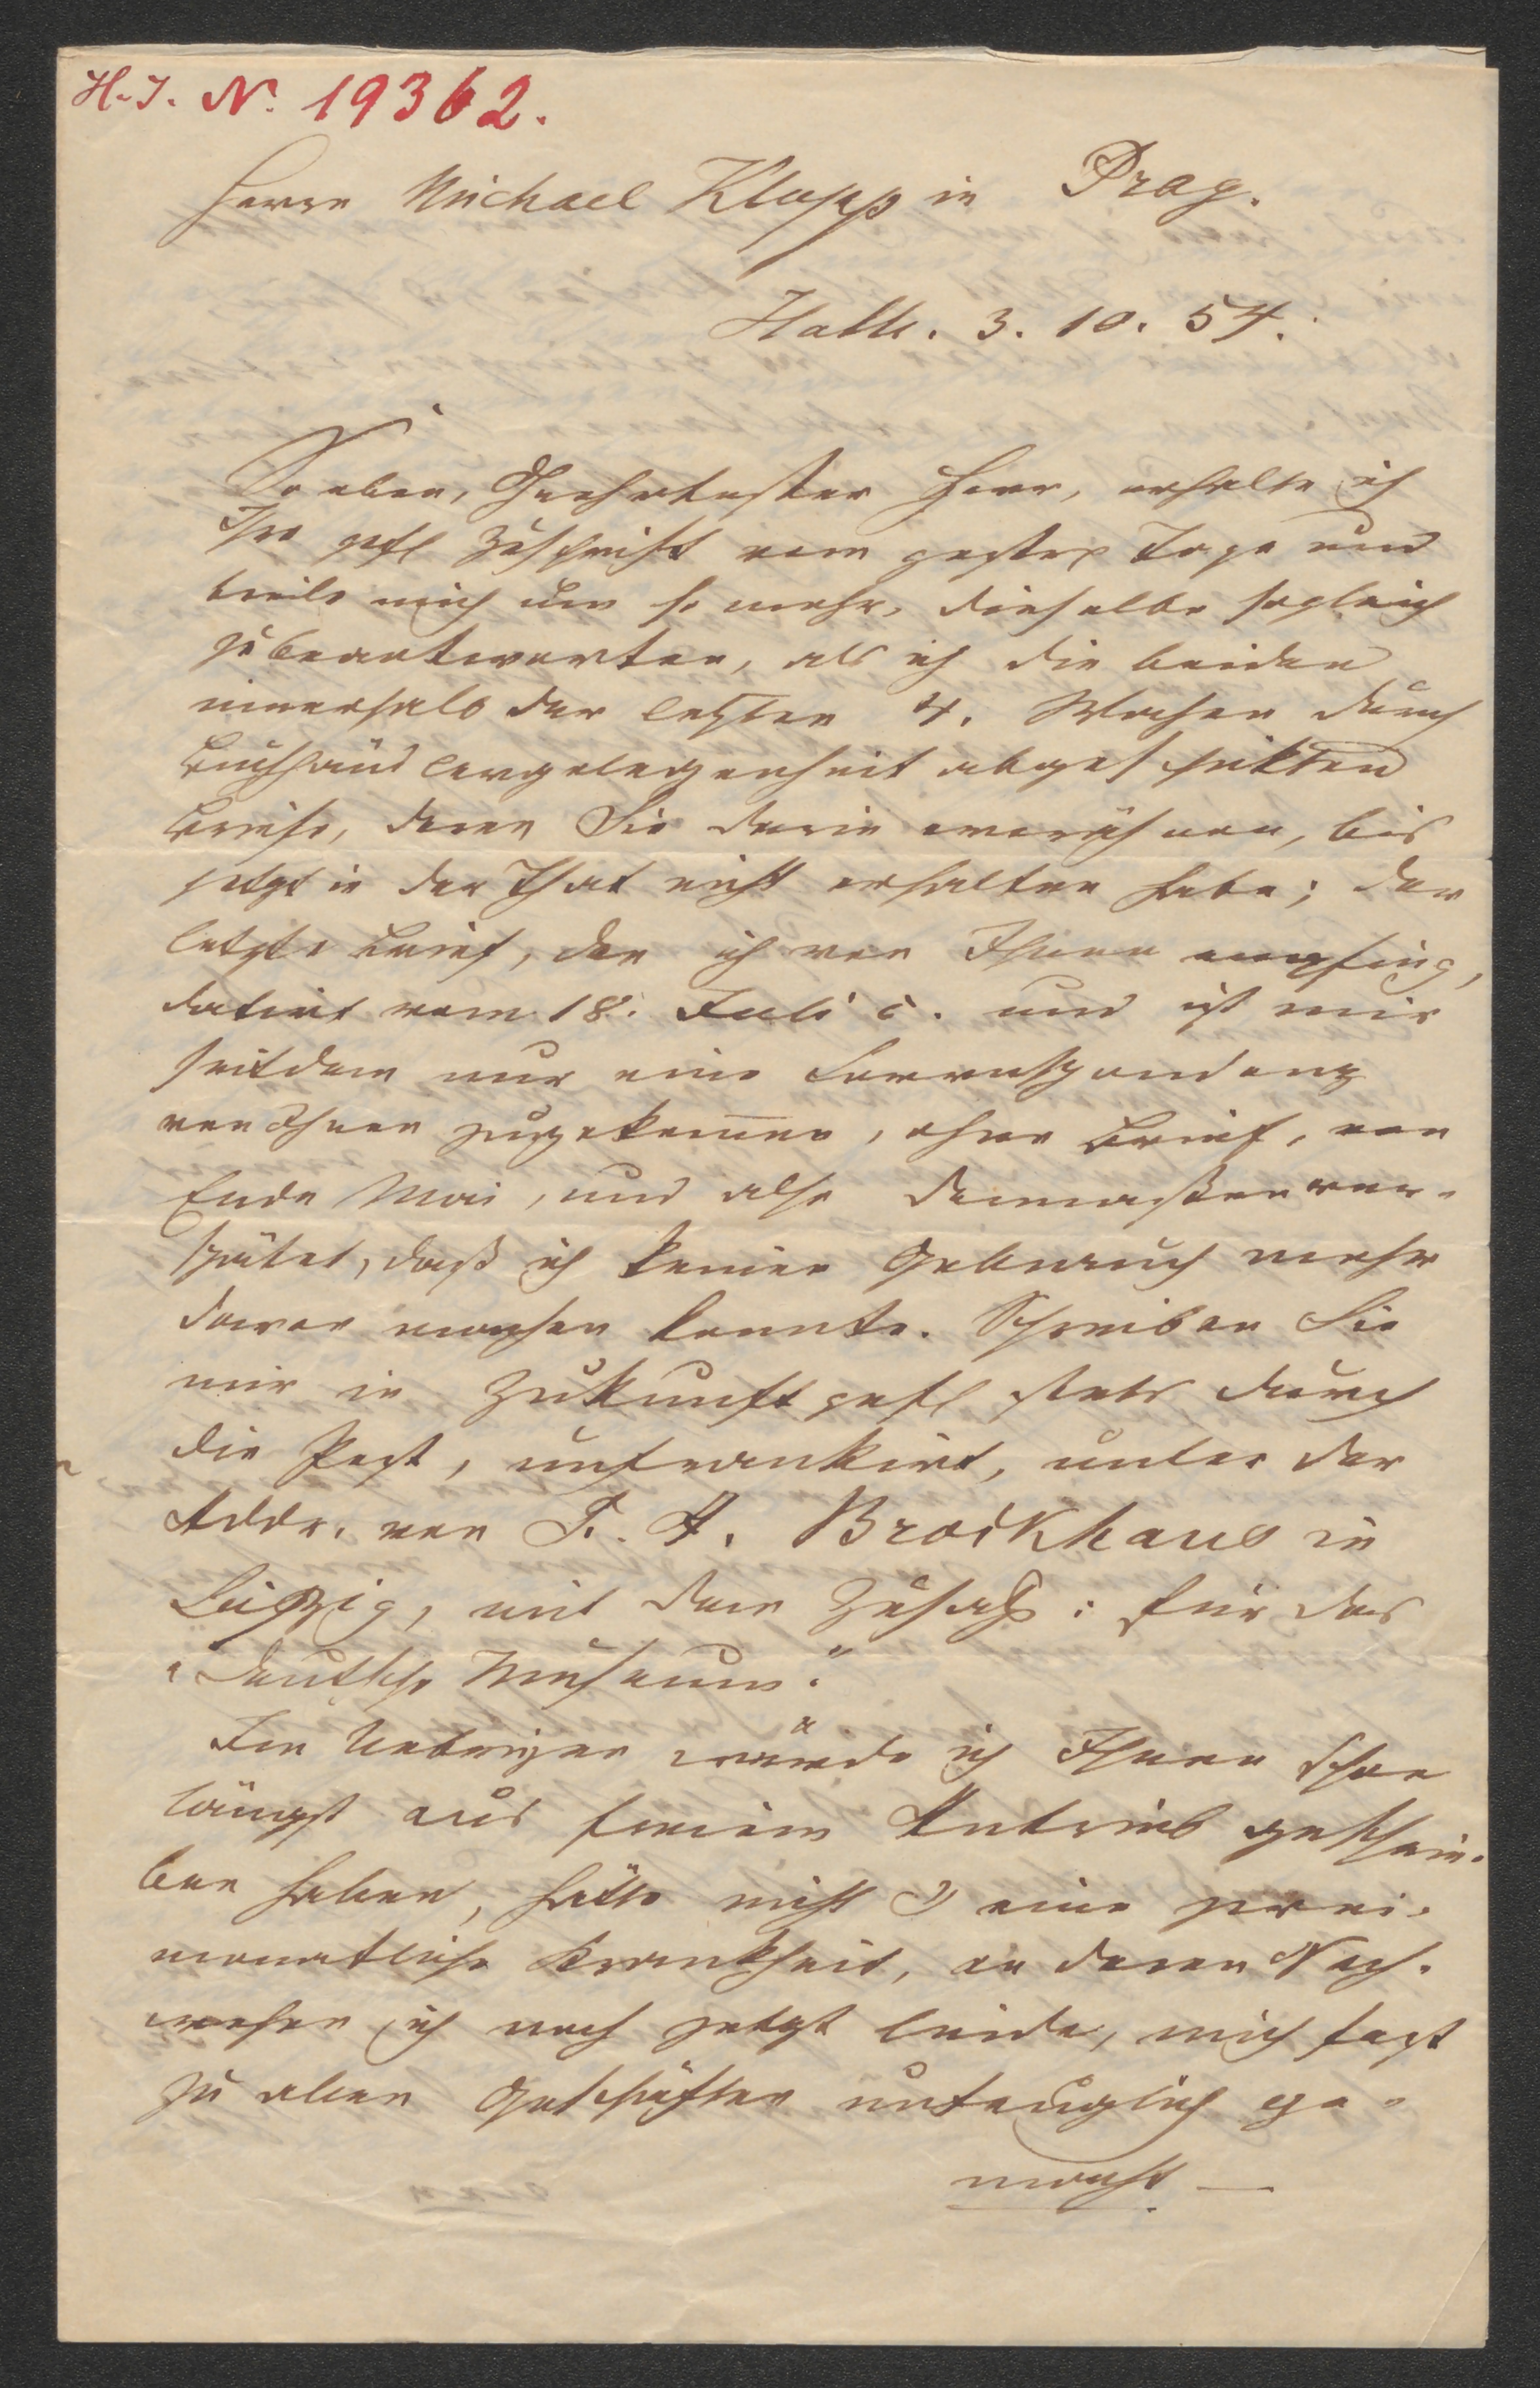 H. I. N. 19362.
Herrn Michael Klapp in Prag.
Halle. 3. 10. 54.
So eben, Geehrtester Herr, erhalte ich
Ihre gefl Zuschrift vom gestr Tage und
beeile mich um so mehr, dieselbe sogleich
zu beantworten, als ich die beiden
innerhalb der letzten 4. Wochen durch
Buchhändlergelegenheit abgeschickten
Briefe, deren Sie darin erwähnen, bis
jetzt in der That nicht erhalten habe; der
letzte Brief, den ich von Ihnen empfing,
datirt vom 18. Juli c. und ist mir
seitdem nur eine Correspondenz
von Ihnen zugekommen, ohne Brief, von
Ende Mai, und also dermaßen ver-
spätet, daß ich keinen Gebrauch mehr
davon machen konnte. Schreiben Sie
mir in Zukunft gefl stets durch
die Post, unfrankirt, unter der
Addr. von F. A. Brockhaus in
Leipzig, mit dem Zusatz: für das
„deutsche Museum."
Im Uebrigen würde ich Ihnen schon
längst aus freiem Antrieb geschrie-
ben haben, hätte nicht 1) eine zwei-
monatliche Krankheit, an deren Nach-
wehen ich noch jetzt leide, mich fast
zu allen Geschäften untauglich ge-
macht —